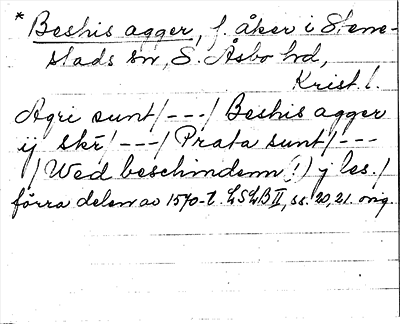 * Beshis agger, f. åker i Stene-
stads sn, S. Åsbo hd,
Krist. l.
Agri sunt /---/ Beshis agger
ij skr̄! ---/ Prata sunt /---
/ Wed beschindenn !) j les. /
förra delen av 1570-t. LSLB II, ss. 20, 21. orig.